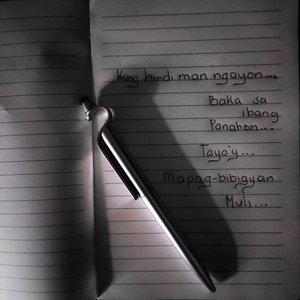 Kung hindi man ngayon...
Baka sa
ibang
Panahon...
Tayo'y...
Mapag-bibigyan
Muli...